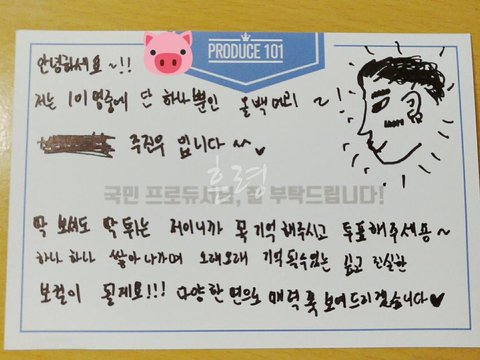 PRODUCE 101
안녕하세요~!!
저는 101명중에 단 하나뿐인 올백머리~!
주진우 입니다~♥
훈령
국민 프로듀서님, 잘 부탁드립니다!
딱 보셔도 딱 튀는 저이니까 꼭 기억해주시고 투표해주세용~
하나 하나 쌓아나가며 오래오래 기억될수있는 깊고 진실한
보컬이 될게요!!! 다양한 면으로 매력 훅 보여드리겠습니다♥